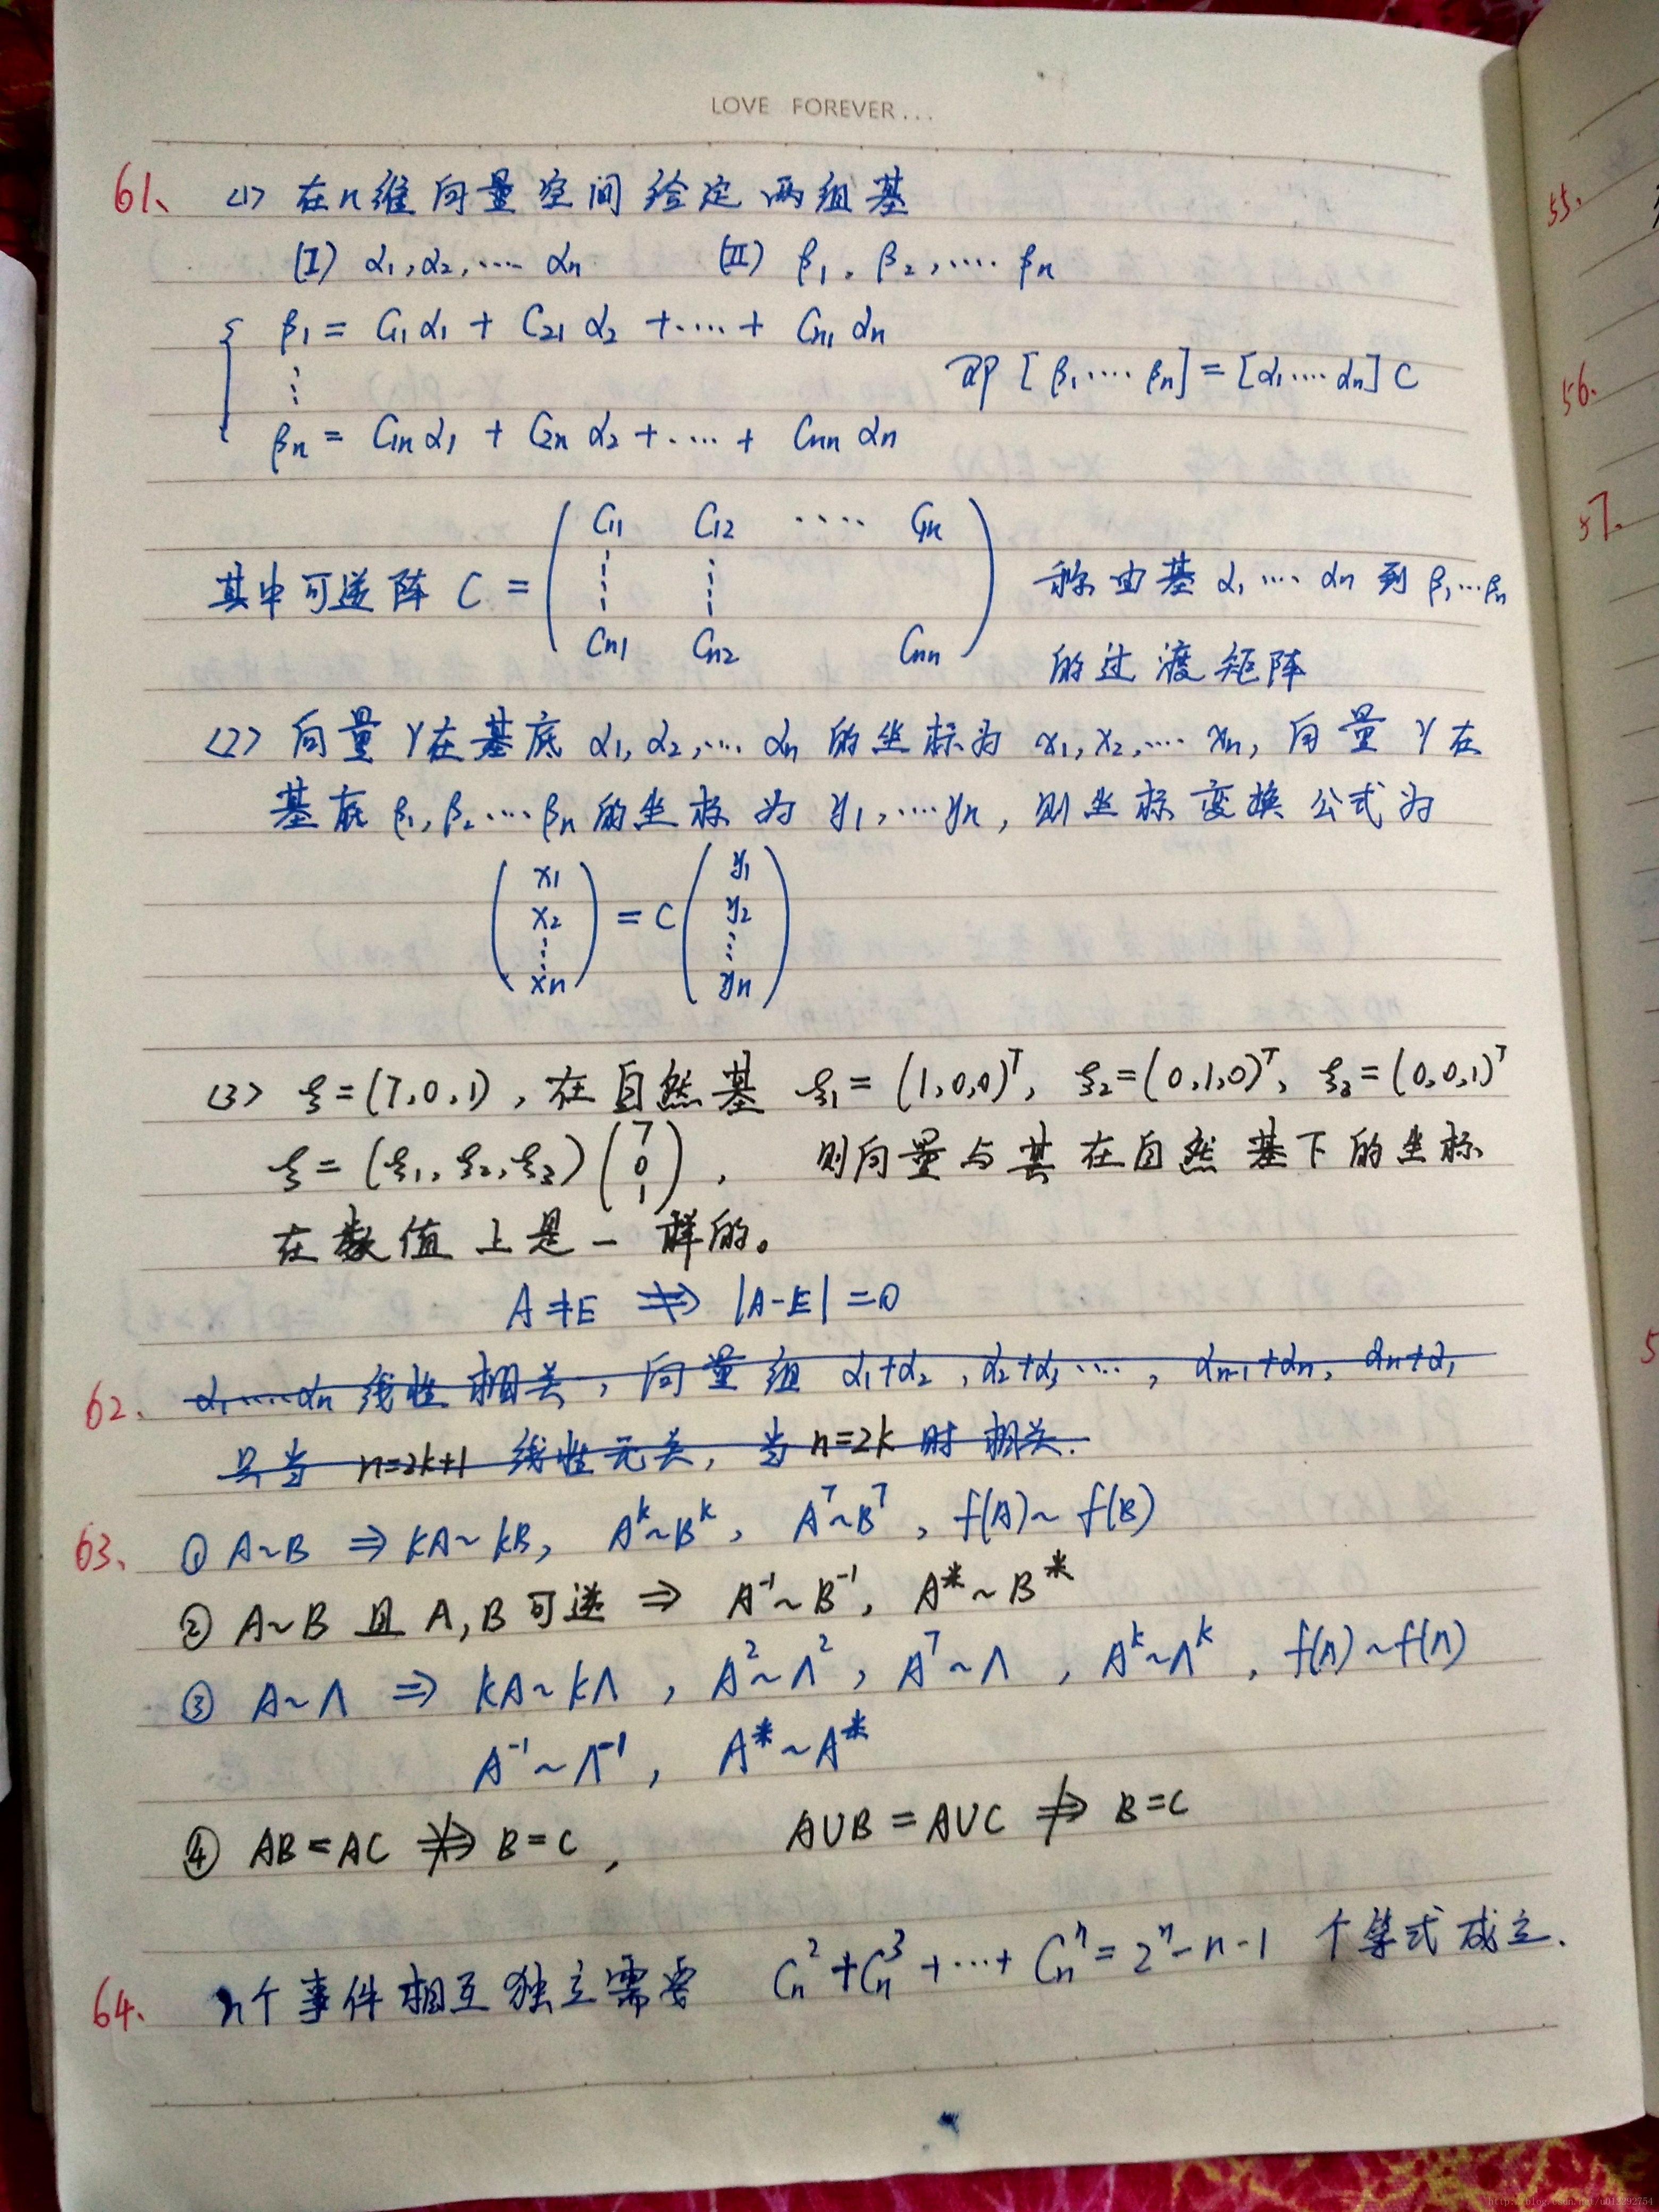 LOVE FOREVER...
61、 (1) 在n维向量空间给定两组基
(I) α₁,α₂,…. αn (II) β₁, β₂,…. βn
{ β₁ = C₁₁α₁ + C₂₁α₂ +….+ Cn₁αn
⋮ 即 [β₁….βn]=[α₁….αn]C
βn = C₁nα₁ + C₂nα₂ +….+ Cnnαn
C₁₁ C₁₂ …. C₁n
其中可逆阵 C = ( ⋮ ⋮ ) 称由基 α₁….αn 到 β₁…βn
Cn₁ Cn₂ Cnn
的过渡矩阵
(2) 向量γ在基底 α₁,α₂,…. αn 的坐标为 x₁,x₂,…. xn, 向量γ在
基底 β₁,β₂….βn 的坐标为 y₁,….yn, 则坐标变换公式为
(x₁ x₂ ⋮ xn) = C (y₁ y₂ ⋮ yn)
(3) ξ=(7,0,1), 在自然基 ξ₁=(1,0,0)ᵀ, ξ₂=(0,1,0)ᵀ, ξ₃=(0,0,1)ᵀ
ξ=(ξ₁,ξ₂,ξ₃)(7 0 1), 则向量与其在自然基下的坐标
在数值上是一样的。
A≠E ⇏ |A-E|=0
62、 α₁….αn 线性相关, 向量组 α₁+α₂, α₂+α₃…., αn-1+αn, αn+α₁
只当 n=2k+1 线性无关, 当 n=2k 时相关.
63、 ① A~B ⇒ kA~kB, Aᵏ~Bᵏ, Aᵀ~Bᵀ, f(A)~f(B)
② A~B 且 A,B可逆 ⇒ A⁻¹~B⁻¹, A*~B*
③ A~Λ ⇒ kA~kΛ, A²~Λ², Aᵀ~Λ, Aᵏ~Λᵏ, f(A)~f(Λ)
A⁻¹~Λ⁻¹, A*~A*
④ AB=AC ⇏ B=C, A∪B=A∪C ⇏ B=C
64、 n个事件相互独立需要 Cn²+Cn³+…+Cnⁿ=2ⁿ-n-1 个等式成立.
55.
56.
57.
5